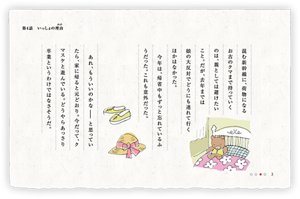 第4話　いっしょの理由
混む新幹線に、荷物になる
お古のクマまで持っていく
のは、親としては避けたい
こと。だが、去年までは
娘の大反対でどうにも連れて行く
ほかはなかった。
今年は、帰省中もずっと忘れているふ
うだった。これも意外だった。
あれ、もういいのかな――と思ってい
たら、家に帰ると元どおり。今だって、ク
マスケと遊んでいる。どうやらあっさり
卒業というわけではなさそうだ。